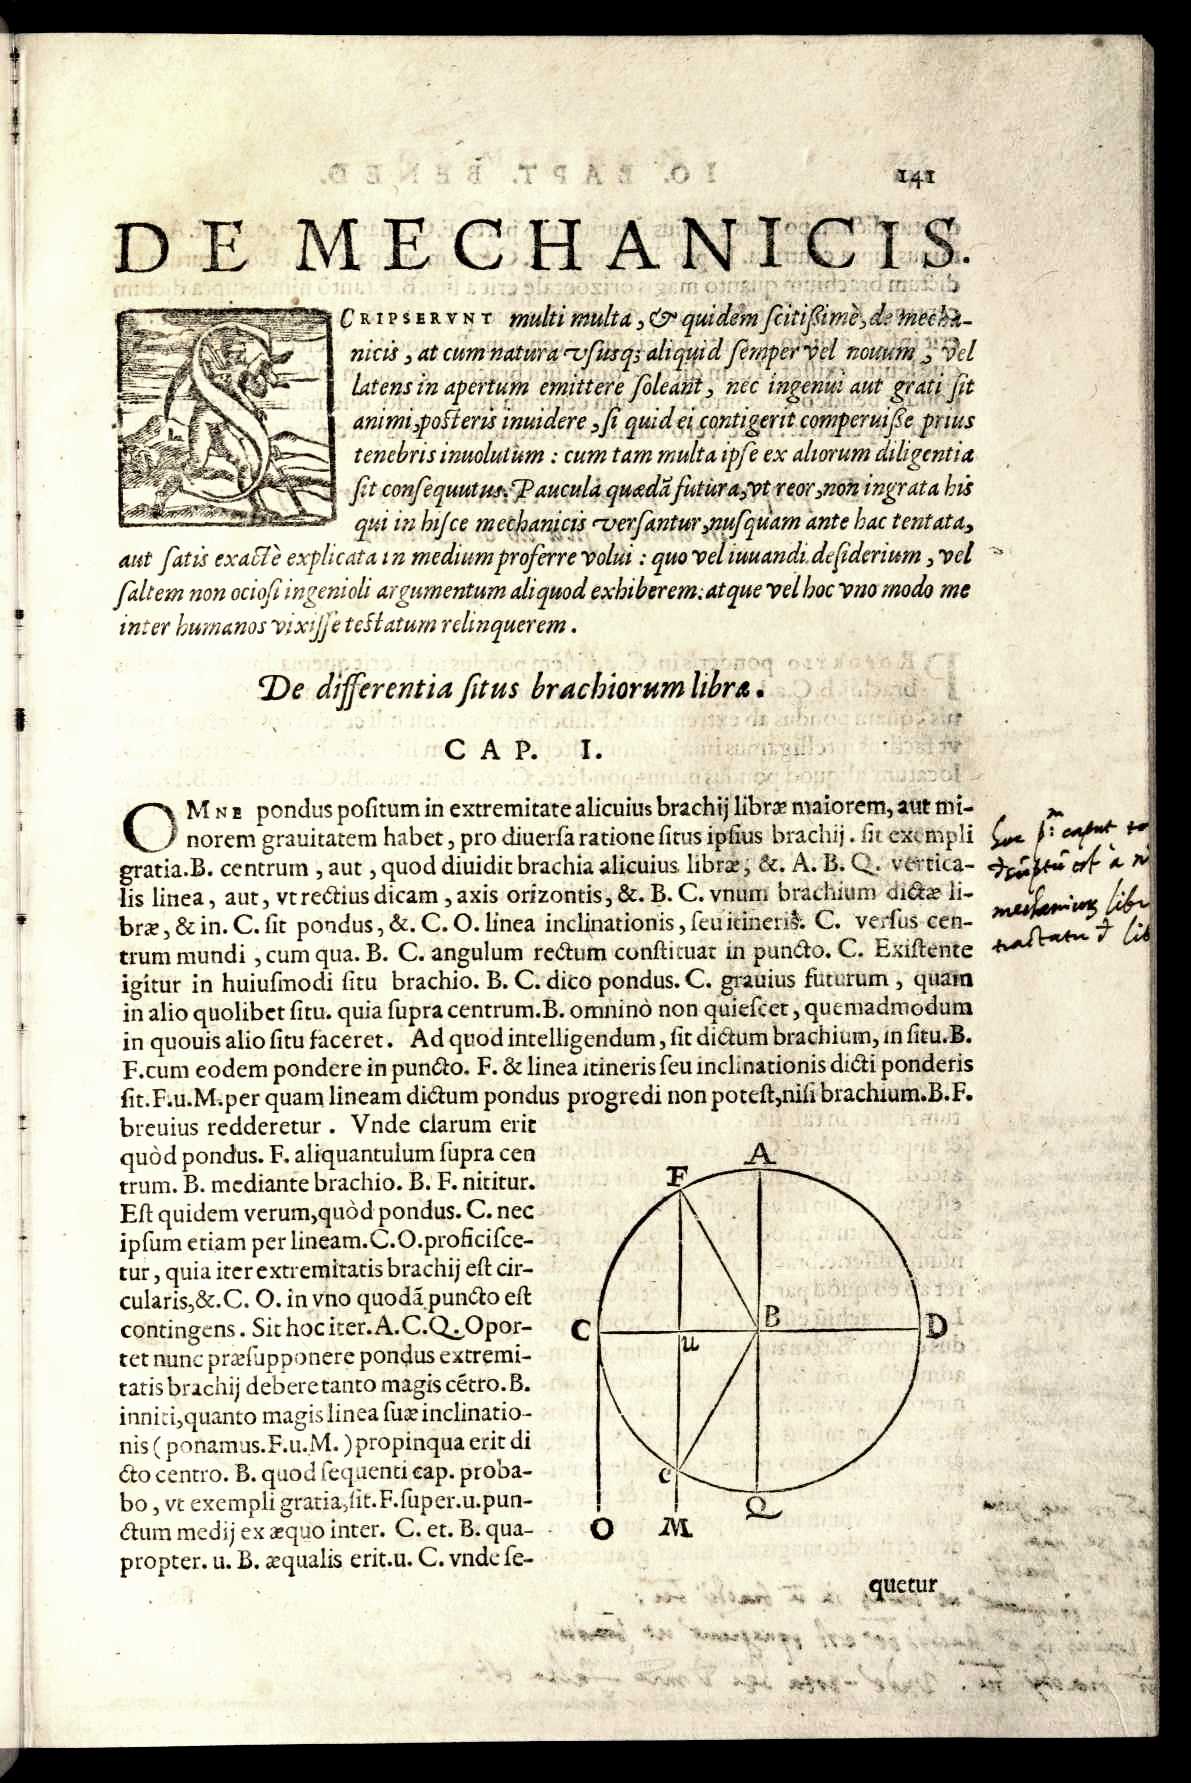 141
DE MECHANICIS.
SCRIPSERVNT multi multa, & quidem scitißimè, de mecha-
nicis, at cum natura vsusq; aliquid semper vel nouum, vel
latens in apertum emittere soleant, nec ingenui aut grati sit
animi, posteris inuidere, si quid ei contigerit comperuiße prius
tenebris inuolutum: cum tam multa ipse ex aliorum diligentia
sit consequutus. Paucula quædã futura, vt reor, non ingrata his
qui in hisce mechanicis versantur, nusquam ante hac tentata,
aut satis exactè explicata in medium proferre volui: quo vel iuuandi desiderium, vel
saltem non ociosi ingenioli argumentum aliquod exhiberem: atque vel hoc vno modo me
inter humanos vixisse testatum relinquerem.
De differentia situs brachiorum libræ.
CAP. I.
OMNE pondus positum in extremitate alicuius brachij libræ maiorem, aut mi-
norem grauitatem habet, pro diuersa ratione situs ipsius brachij. sit exempli
gratia. B. centrum, aut, quod diuidit brachia alicuius libræ, &. A. B. Q. vertica-
lis linea, aut, vt rectius dicam, axis orizontis, &. B. C. vnum brachium dictæ li-
bræ, & in. C. sit pondus, &. C. O. linea inclinationis, seu itineris. C. versus cen-
trum mundi, cum qua. B. C. angulum rectum constituat in puncto. C. Existente
igitur in huiusmodi situ brachio. B. C. dico pondus. C. grauius futurum, quam
in alio quolibet situ. quia supra centrum. B. omninò non quiescet, quemadmodum
in quouis alio situ faceret. Ad quod intelligendum, sit dictum brachium, in situ. B.
F. cum eodem pondere in puncto. F. & linea itineris seu inclinationis dicti ponderis
sit. F. u. M. per quam lineam dictum pondus progredi non potest, nisi brachium. B. F.
breuius redderetur. Vnde clarum erit
quòd pondus. F. aliquantulum supra cen
trum. B. mediante brachio. B. F. nititur.
Est quidem verum, quòd pondus. C. nec
ipsum etiam per lineam. C. O. proficisce-
tur, quia iter extremitatis brachij est cir-
cularis, &. C. O. in vno quodã puncto est
contingens. Sit hoc iter. A. C. Q. Opor-
tet nunc præsupponere pondus extremi-
tatis brachij debere tanto magis cẽtro. B.
inniti, quanto magis linea suæ inclinatio-
nis (ponamus. F. u. M.) propinqua erit di
cto centro. B. quod sequenti cap. proba-
bo, vt exempli gratia, sit. F. super. u. pun-
ctum medij ex æquo inter. C. et. B. qua-
propter. u. B. æqualis erit. u. C. vnde se-
A
F
B
C
D
u
e
Q
O
M
quetur